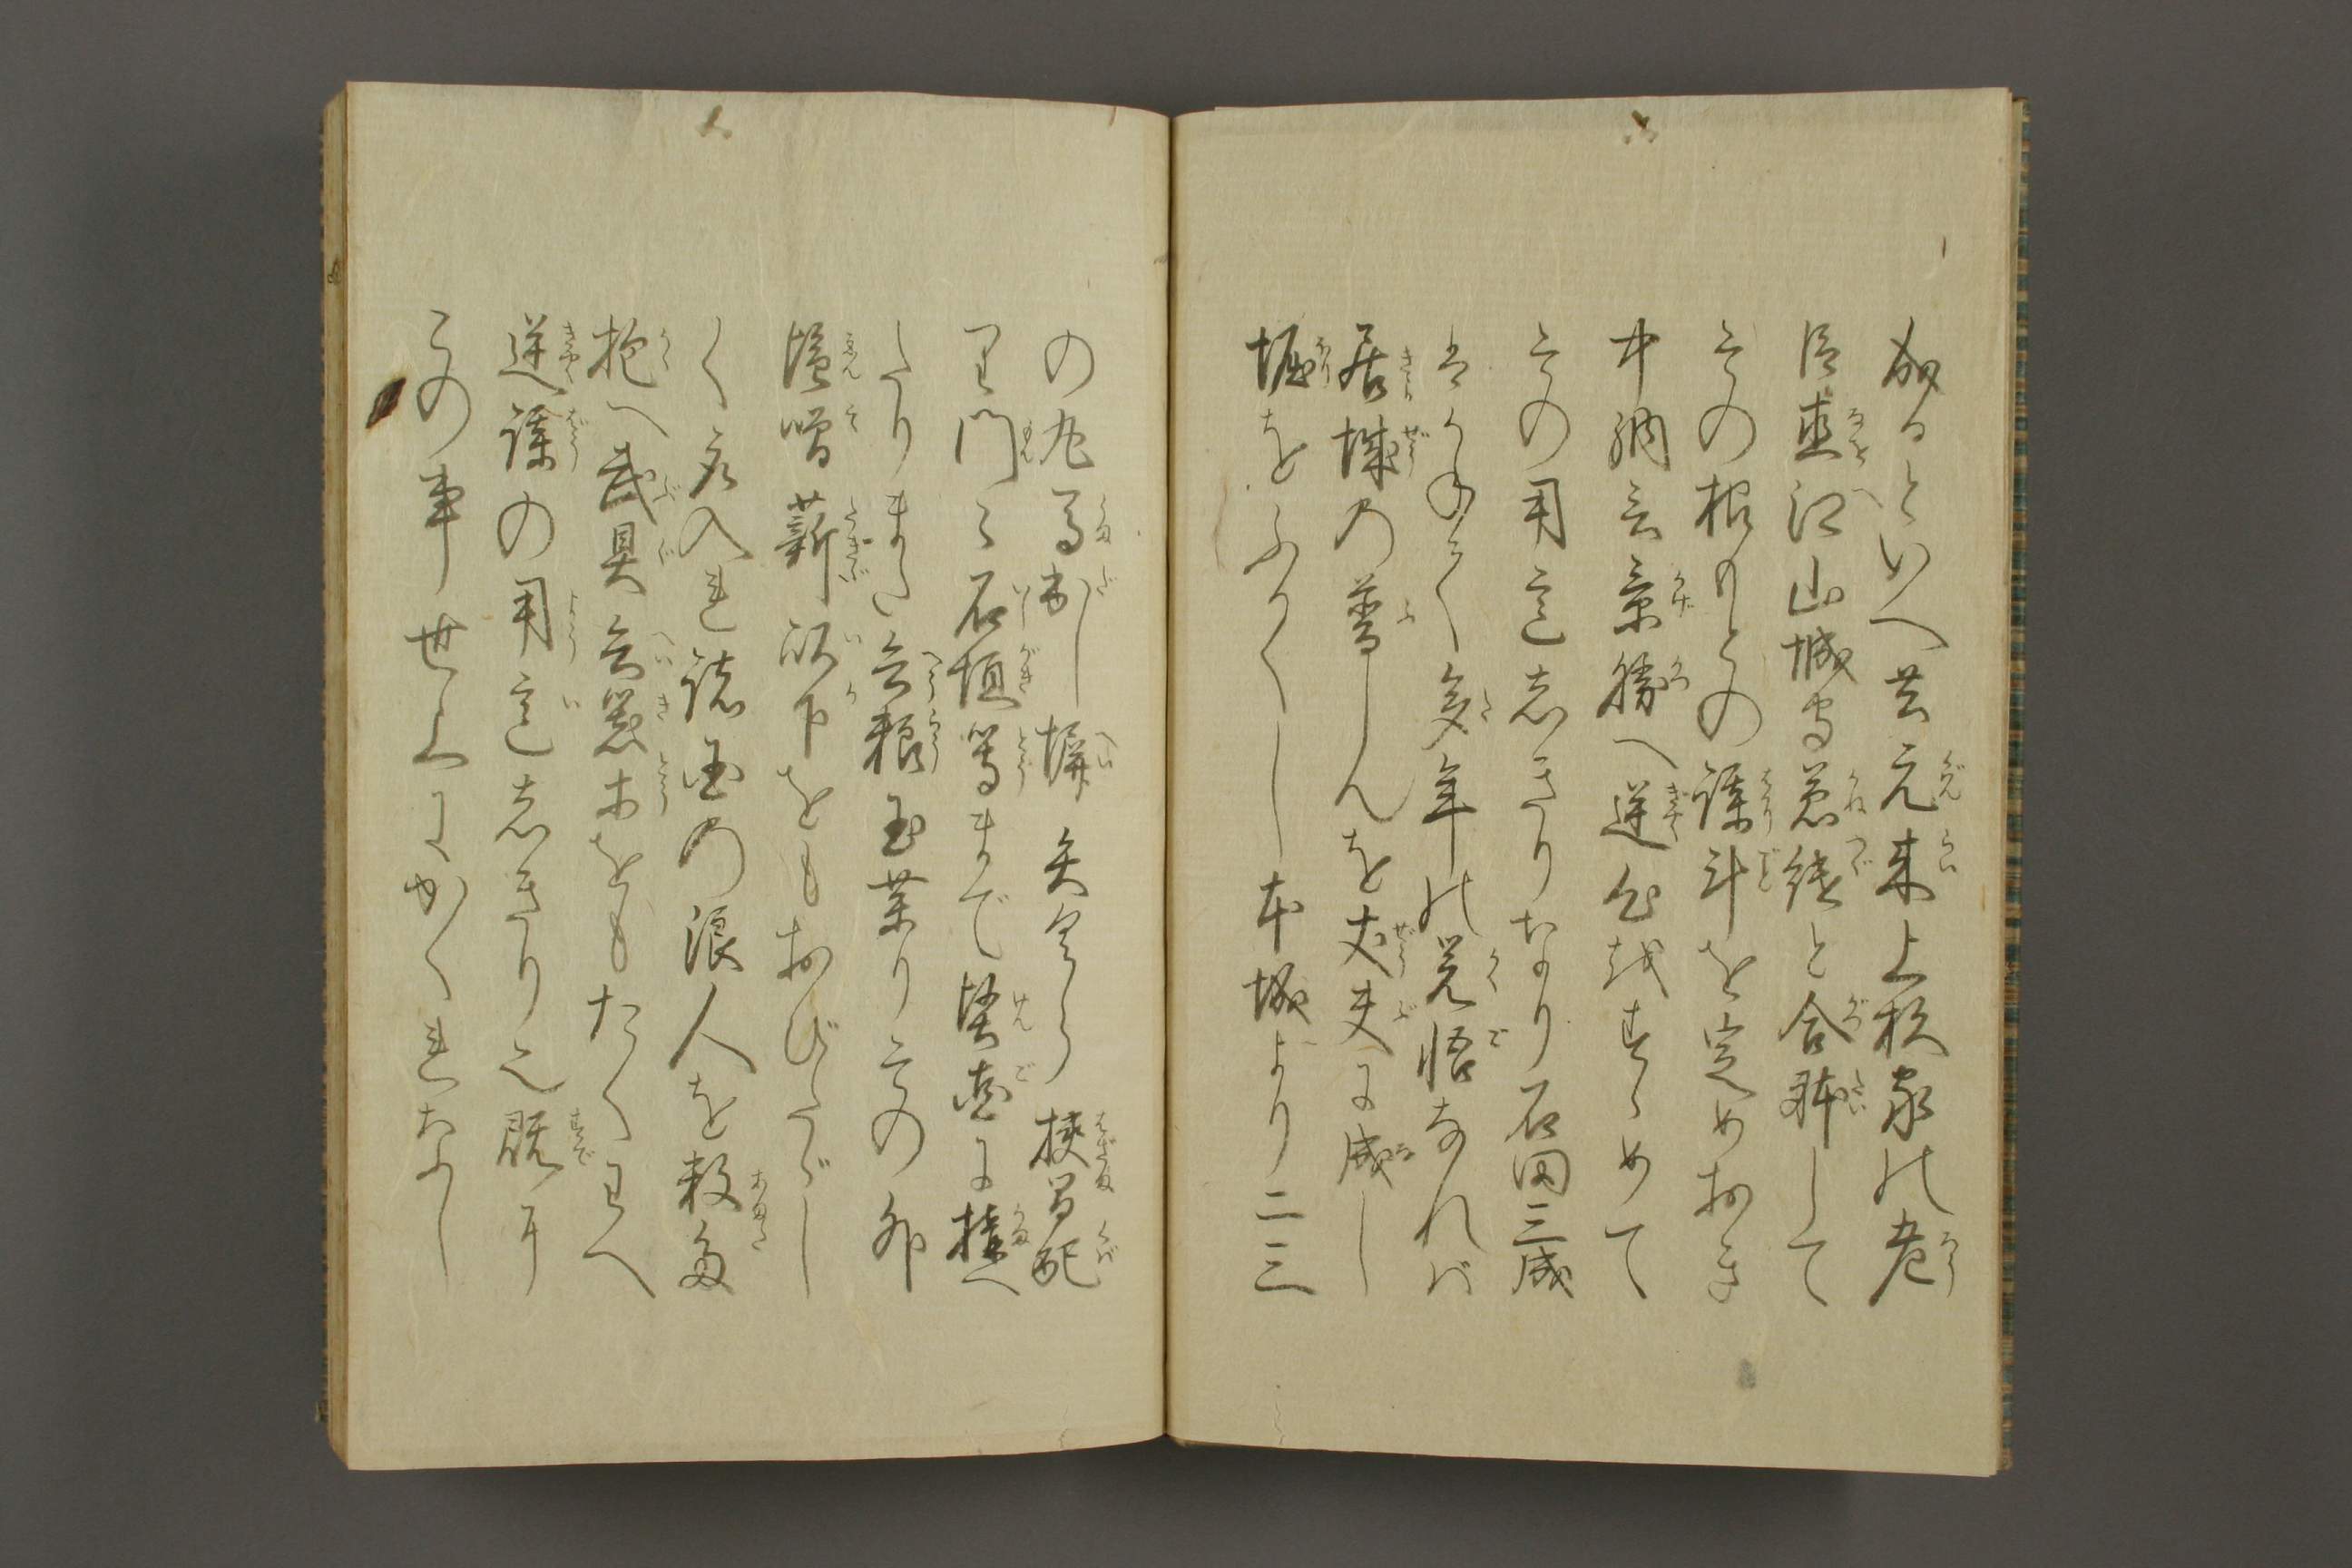 成るといへ共元来上杉家の老
臣直江山城守兼続と合躰して
その根もとの謀斗を定めおき
中納言景勝へ逆心をすゝめて
その用意しきりなり石田三成
はかねて多年の覚悟なれば
居城の普しんを丈夫に成し
堀をふかくし本城より二三
の丸馬出し塀矢倉狭間配
り門々石垣等まで堅固に構へ
たりまた兵粮玉薬りその外
塩噌薪以下をもおびたゞし
く取入れ諸国の浪人を数多
抱へ武具兵器等をもたくはへ
逆謀の用意しきり也既に
この事世上にかくれなふし